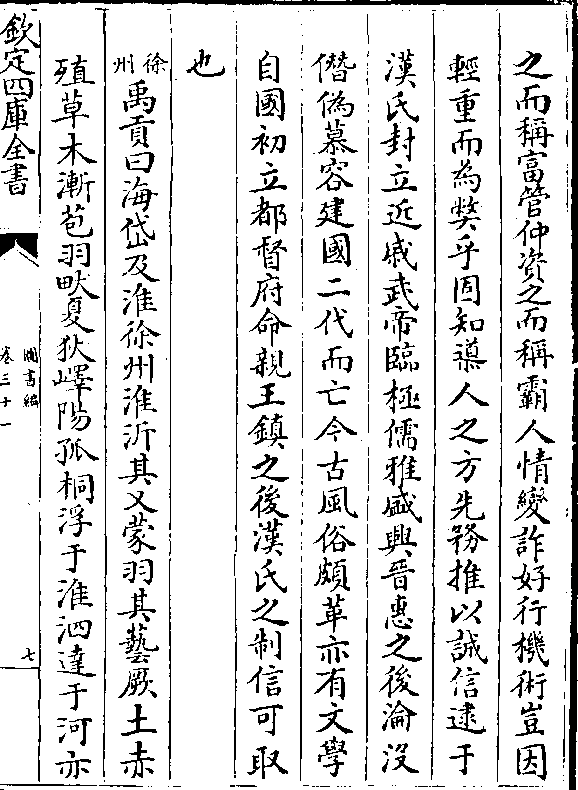 之而稱富管仲資之而稱霸人情變詐好行機術豈因
輕重而為獘乎固知導人之方先務推以誠信逮于
漢氏封立近戚武帝臨極儒雅盛興晉惠之後淪沒
僭偽慕容建國二代而亡今古風俗頗革亦有文學
自國初立都督府命親王鎮之後漢氏之制信可取
也
徐州
禹貢曰海岱及淮徐州淮沂其乂蒙羽其藝厥土赤
殖草木漸苞羽畎夏狄嶧陽孤桐浮于淮泗達于河亦
欽定四庫全書
圖書編
卷三十一
七